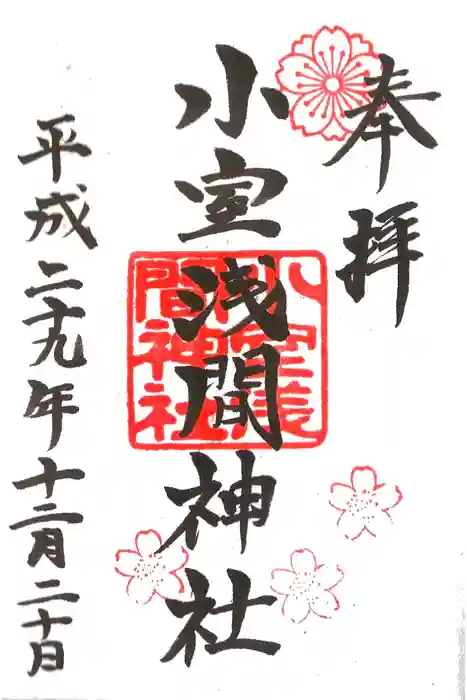 奉拝
小室浅間神社
平成二十九年十二月二十日
間神社